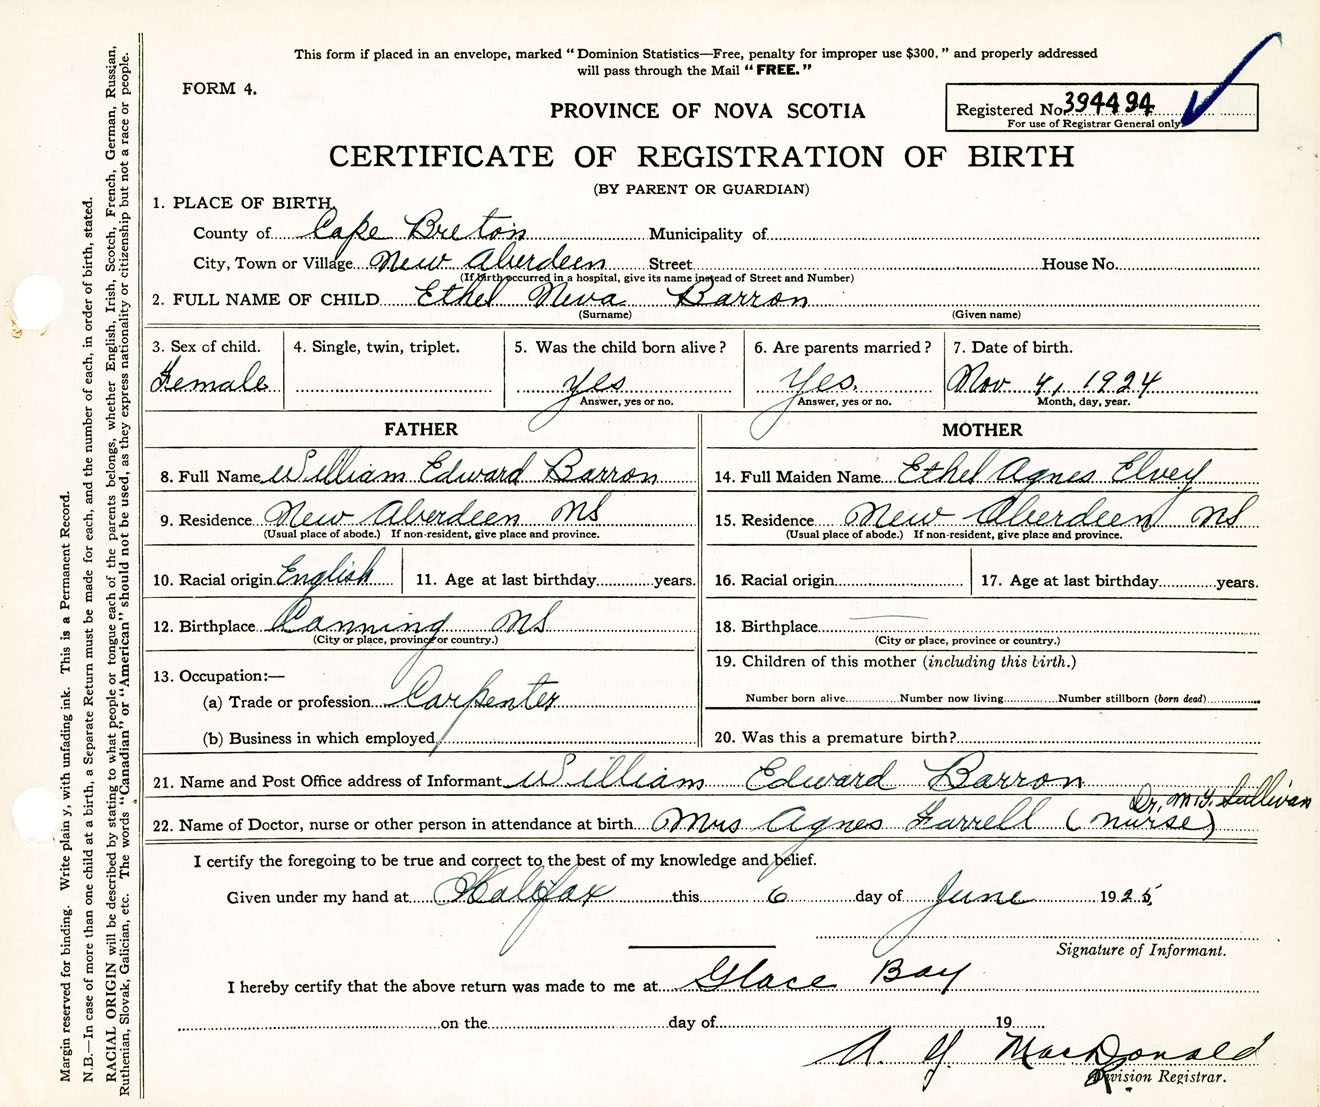 This form if placed in an envelope, marked "Dominion Statistics—Free, penalty for improper use $300." and properly addressed
will pass through the Mail "FREE."
FORM 4.
PROVINCE OF NOVA SCOTIA
Registered No. 394494
For use of Registrar General only
CERTIFICATE OF REGISTRATION OF BIRTH
(BY PARENT OR GUARDIAN)
1. PLACE OF BIRTH,
County of Cape Breton Municipality of
City, Town or Village New Aberdeen Street House No.
(If birth occurred in a hospital, give its name instead of Street and Number)
2. FULL NAME OF CHILD Ethel Neva Barron
(Surname) (Given name)
3. Sex of child. 4. Single, twin, triplet. 5. Was the child born alive? 6. Are parents married? 7. Date of birth.
Female yes Yes. Nov 4, 1924
Answer, yes or no. Answer, yes or no. Month, day, year.
FATHER MOTHER
8. Full Name William Edward Barron 14. Full Maiden Name Ethel Agnes Elvey
9. Residence New Aberdeen NS 15. Residence New Aberdeen NS
(Usual place of abode.) If non-resident, give place and province. (Usual place of abode.) If non-resident, give place and province.
10. Racial origin English 11. Age at last birthday years. 16. Racial origin 17. Age at last birthday years.
12. Birthplace Canning NS 18. Birthplace
(City or place, province or country.) (City or place, province or country.)
13. Occupation:— 19. Children of this mother (including this birth.)
(a) Trade or profession Carpenter Number born alive Number now living Number stillborn (born dead)
(b) Business in which employed 20. Was this a premature birth?
21. Name and Post Office address of Informant William Edward Barron
Dr. M.T. Sullivan
22. Name of Doctor, nurse or other person in attendance at birth Mrs Agnes Farrell (nurse)
I certify the foregoing to be true and correct to the best of my knowledge and belief.
Given under my hand at Halifax this 6 day of June 1925
Signature of Informant.
I hereby certify that the above return was made to me at Glace Bay
on the day of 19
A. J. MacDonald
Division Registrar.
Margin reserved for binding. Write plainly, with unfading ink. This is a Permanent Record.
N.B.—In case of more than one child at a birth, a Separate Return must be made for each, and the number of each, in order of birth, stated.
RACIAL ORIGIN will be described by stating to what people or tongue each of the parents belongs, whether English, Irish, Scotch, French, German, Russian,
Ruthenian, Slovak, Galician, etc. The words "Canadian" or "American" should not be used, as they express nationality or citizenship but not a race or people.